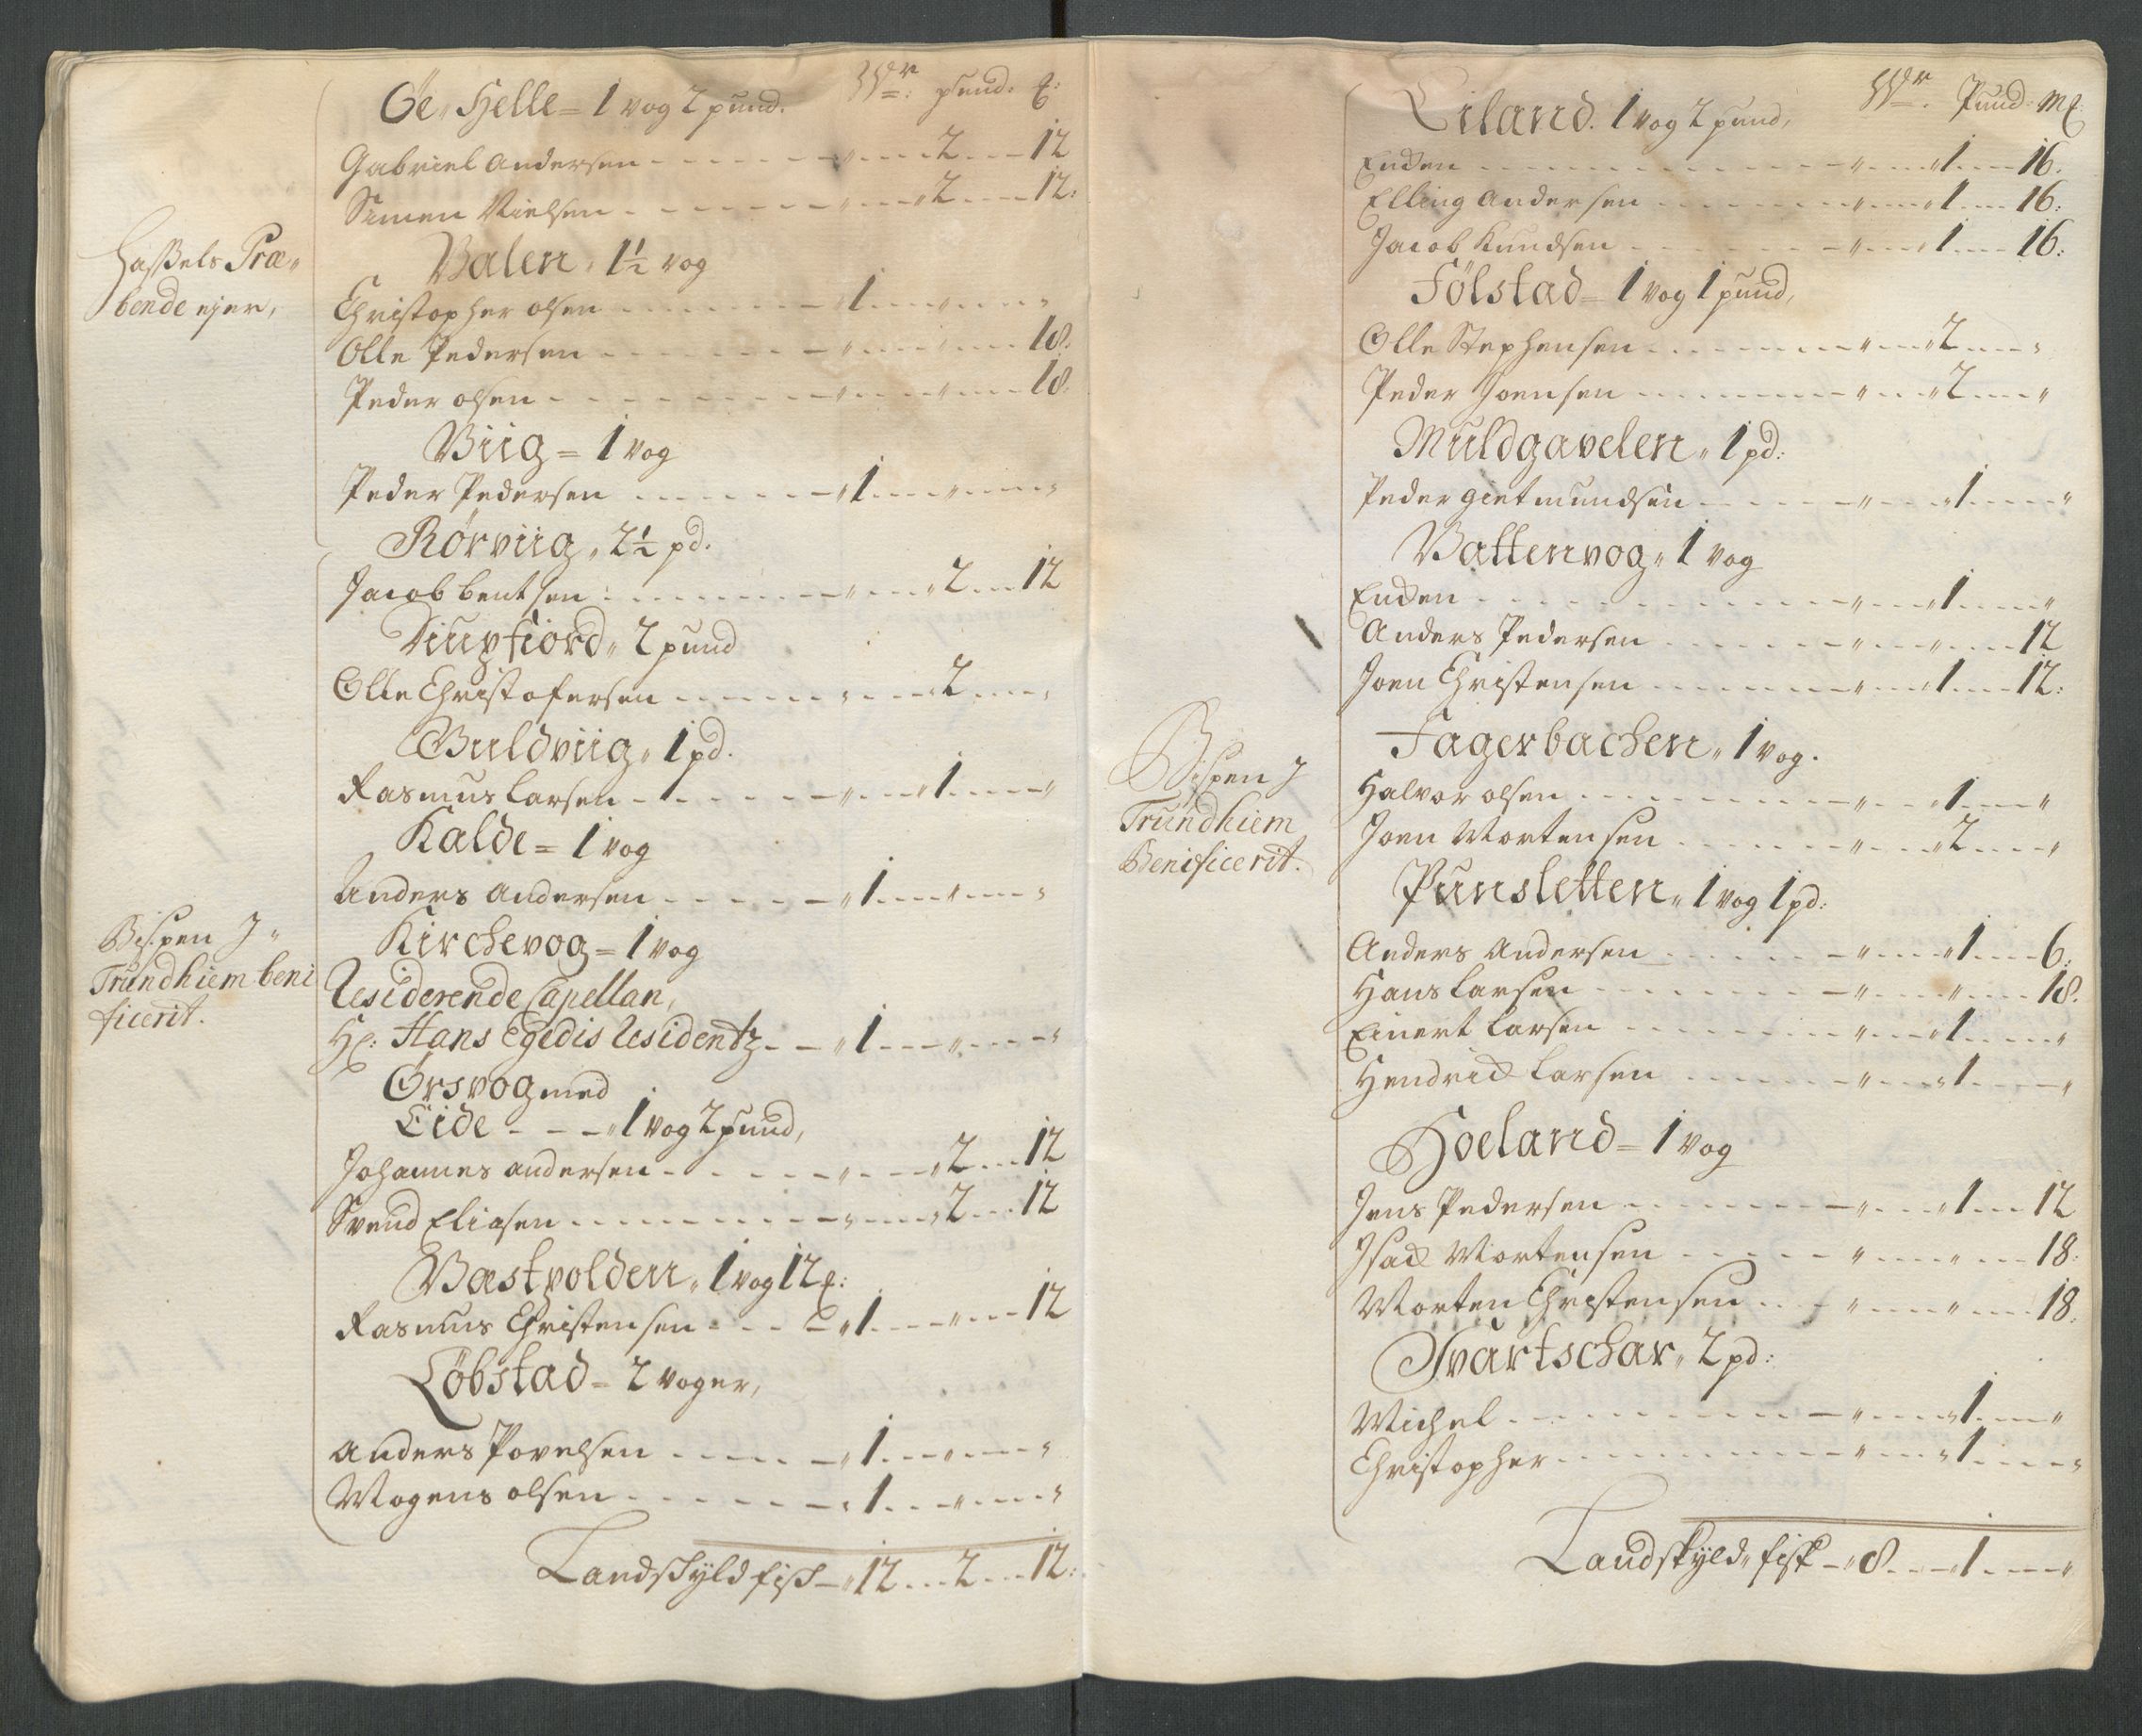 Öe, Helle = 1 vog 2 pund. W=r: pund: ℔:
Gabriel Andersen - - - - - - - - " - - - 2 - - - 12
Simen Nielsen - - - - - - - - " - - - 2 - - - 12:
Hassels Præ-
bende ejer,
Valen, 1½ vog
Christopher olsen - - - - - - - 1 - - - " - - - "
Olle Pedersen - - - - - - - " - - - " - - - 18.
Peder olsen - - - - - - - - " - - - " - - - 18.
Viig = 1 vog
Peder Pedersen - - - - - - - 1 - - - " - - - "
Rørviig, 2½ pd.
Jacob bentsen : - - - - - - - " - - - 2 - - - 12
Diupfiord, 2 pund
Olle Christofersen - - - - - - " - - - 2 - - - "
Guldviig, 1 pd.
Rasmus Larsen - - - - - - - " - - - 1 - - - "
Kalde = 1 vog
Anders Andersen - - - - - - 1 - - - " - - - "
Bispen J
Trundhiem beni
ficerit.
Kirchevog = 1 vog
Residerende Capellan,
Hr: Hans Egedis Residentz - - 1 - - - " - - - "
Ørsvog med
Eide - - - 1 vog 2 pund,
Johannes andersen - - - - - - " - - - 2 - - - 12
Svend Eliasen - - - - - - - - " - - - 2 - - - 12
Væstvolden, 1 vog 12 ℔:
Rasmus Christensen - - - - 1 - - - " - - - 12
Löbstad = 2 voger,
Anders Povelsen - - - - - - 1 - - - " - - - "
Mogens olsen - - - - - - - 1 - - - " - - - "
Landschyld fisch - 12 - - - 2 - - - 12:
Eiland. 1 vog 2 pund, W=r. Pund: M℔:
Encken - - - - - - - - - - - " - - - 1 - - - 16.
Elling Andersen - - - - - - - " - - - 1 - - - 16:
Jacob Knudsen - - - - - - - " - - - 1 - - - 16:
Fölstad = 1 vog 1 pund,
Olle Stephensen - - - - - - - " - - - 2 - - - "
Peder Joensen - - - - - - - " - - - 2 - - - "
Muldgavelen, 1 pd:
Peder gietmundsen - - - - - " - - - 1 - - - "
Vattenvog, 1 vog
Encken - - - - - - - - - - - " - - - 1 - - - "
Anders Pedersen - - - - - - - " - - - " - - - 12
Joen Christensen - - - - - - - " - - - 1 - - - 12:
Bispen J
Trundhiem
Benificerit.
Fagerbachen, 1 vog.
Halvor olsen - - - - - - - - " - - - 1 - - - "
Joen Mortensen - - - - - - - " - - - 2 - - - "
Punsletten, 1 vog 1 pd:
Anders Andersen - - - - - - - " - - - 1 - - - 6:
Hans Larsen - - - - - - - - " - - - " - - - 18.
Einert Larsen - - - - - - - " - - - 1 - - - "
Hendrick Larsen - - - - - - - " - - - 1 - - - "
Hoeland = 1 vog
Jens Pedersen - - - - - - - " - - - 1 - - - 12
Isack Mortensen - - - - - " - - - " - - - 18:
Morten Christensen - - - " - - - " - - - 18.
Svartschar, 2 pd:
Michel - - - - - - - - - - - " - - - 1 - - - "
Christopher - - - - - - - - - " - - - 1 - - - "
Landskyld, fisk - 8 - - - 1 - - - "